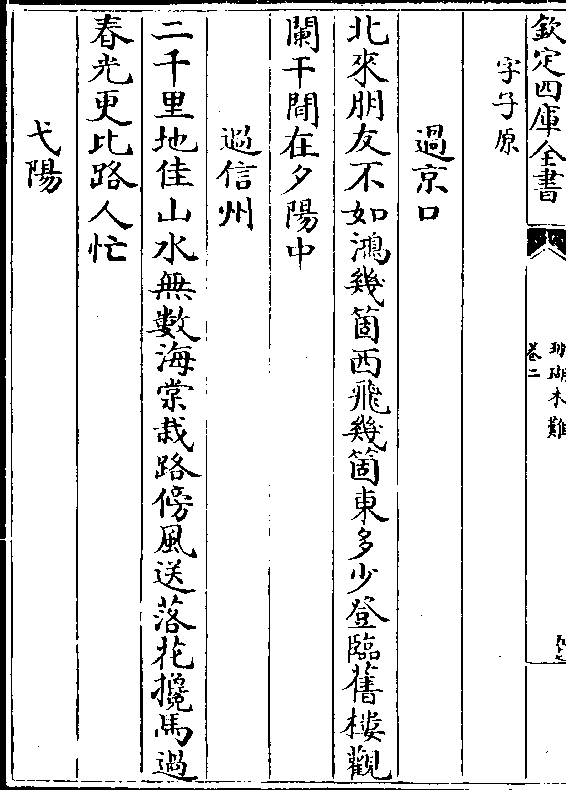 欽定四庫全書
珊瑚木難
卷二
字子原
過京口
北來朋友不如鴻幾箇西飛幾箇東多少登臨舊樓觀
闌干閒在夕陽中
過信州
二千里地佳山水無數海棠栽路傍風送落花攙馬過
春光更比路人忙
弋陽